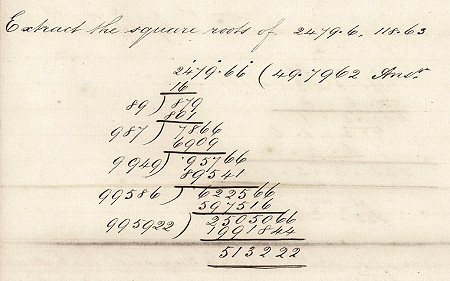 Extract the square roots of 2479.6, 118.63
2479.66 ( 49.7962 Ansr
16
89 ) 879
801
987 ) 7866
6909
9949 ) 95766
89541
99586 ) 622566
597516
995922 ) 2505066
1991844
513222